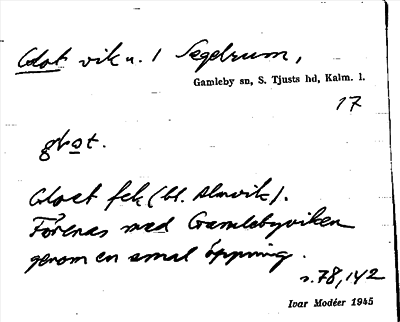 Glot vik n. l Segelrum,
Gamleby sn, S. Tjusts hd, Kalm. l.
17
glot.
Gloet fek (bl. Almvik).
Förenas med Gamlebyviken
genom en smal öppning.
s. 78, 142
Ivar Modéer 1945